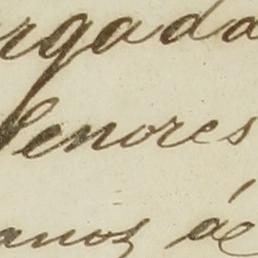 rgada
Señores
anos de